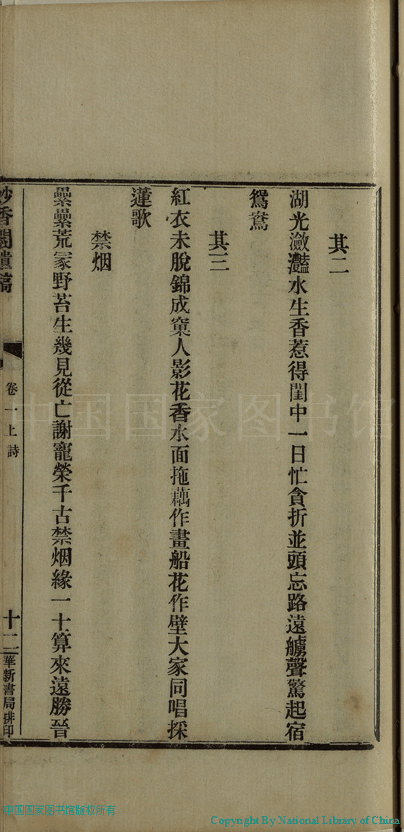 其二
湖光瀲灩水生香惹得閨中一日忙貪折並頭忘路遠艣聲驚起宿
鴛鴦
其三
紅衣未脫錦成窠人影花香水面拖藕作畫船花作壁大家同唱採
蓮歌
禁烟
纍纍荒冢野苔生幾見從亡謝寵榮千古禁烟緣一士算來遠勝晉
妙香閣遺稿
卷一上 詩
十二
華新書局排印
中国国家图书馆
中国国家图书馆版权所有
Copyright By National Library of China